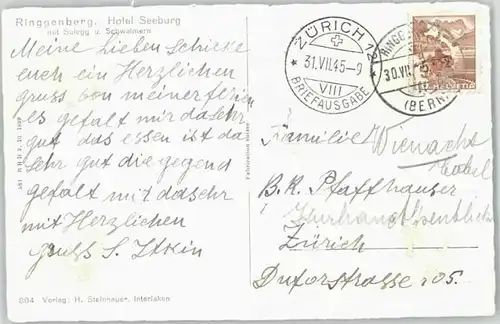 Ringgenberg. Hotel Seeburg
mit Sulegg u. Schwalmern
Meine Lieben Schicke
euch ein Herzlichen
gruss von meiner ferien
es gefalt mir da sehr
gut das essen ist da
sehr gut die gegend
gefalt mit da sehr
mit Herzlichen
gruss S. Itkin
804 Verlag: H. Steinhauer, Interlaken
ZÜRICH 12
31.VII.45-9
VIII
BRIEFAUSGABE
RINGG
30.VII.
(BERN)
HELVETIA
Familie Wienacht
B. R. Pfaffhauser
Zürich
Duforstrasse 105.